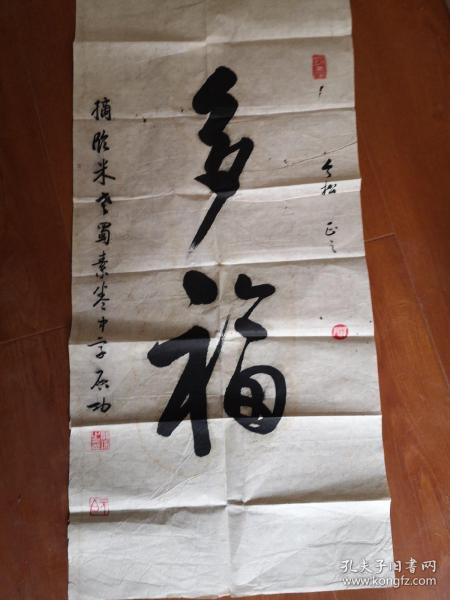 多福
松 正之
摘临米老蜀素卷中字 启功
孔夫子旧书网
www.kongfz.com